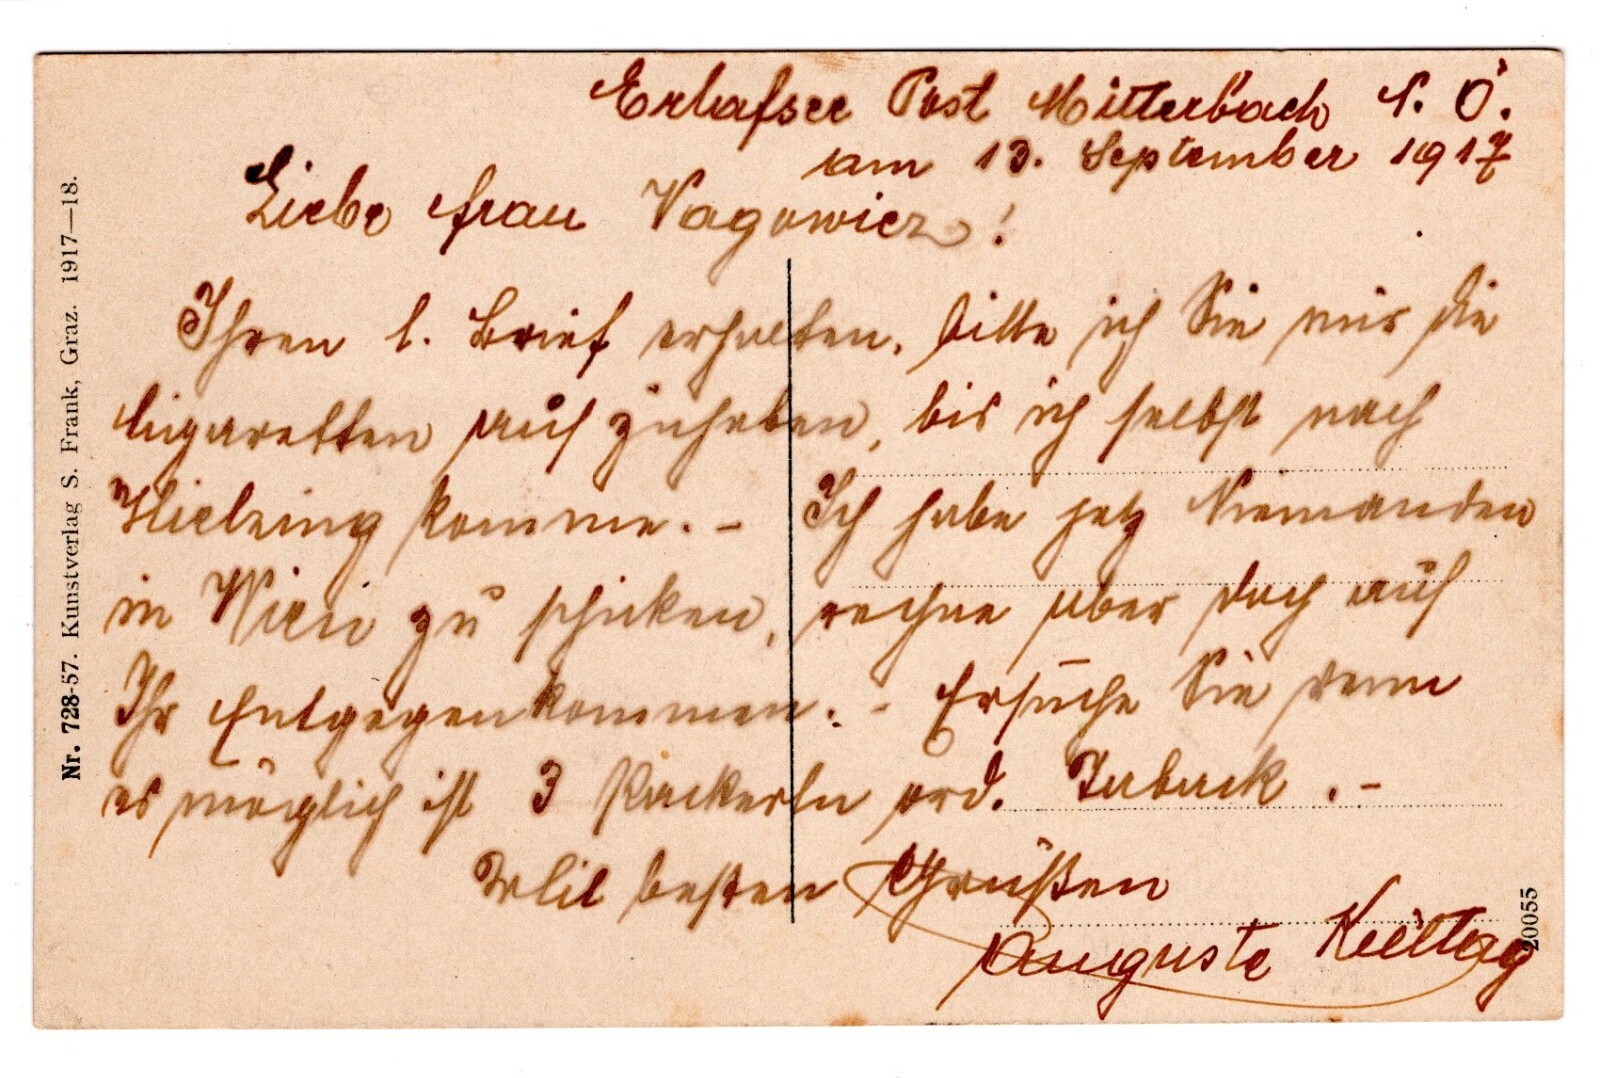 Erlafsee Post Mitterbach N. Ö.
am 13. September 1917
Liebe Frau Vagowicz!
Ihren l. Brief erhalten, bitte ich Sie mir die
Cigaretten auf zuheben, bis ich selbst nach
Hietzing komme. – Ich habe jetz Niemanden
in Wien zu schicken, rechne aber doch auf
Ihr Entgegenkommen. – Ersuche Sie wenn
es möglich ist 3 Packerln ord. Taback. –
Mit besten Grüßen
Auguste
Nr. 728-57. Kunstverlag S. Frank, Graz. 1917—18.
20055